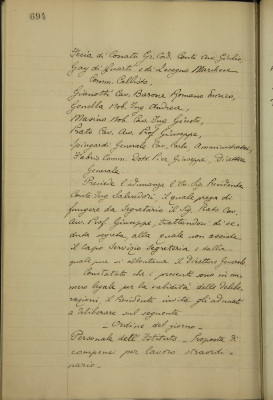 694
Feria di Conato Gr. Cord. Conte Ing. Giulio,
Gay di Quarti e di Lesegno Marchese
Comm. Callisto,
Gianotti Cav. Barone Romano Enrico,
Gonella Nob. Ing. Andrea,
Masino Nob. Cav. Ing.
Prato Cav. Avv. Prof. Giuseppe,
Generale Cav. Carlo, Amministratori
Fabris Comm. Dott. Giuseppe, Direttore
Generale
Presiede l'adunanza l'Ill. Sig. Presidente
Conte Ing. il quale prega di
fungere da Segretario il Sig. Prato Cav.
Avv. Prof. Giuseppe, trattandosi di se-
duta segreta, alla quale non assiste
il Capo Servizio Segreteria e dalla
quale pure si allontana il Direttore Generale
Constatato che i presenti sono in nu-
mero legale per la validità delle delibe-
razioni, il Presidente invita gli adunati
a deliberare sul seguente
- Ordine del giorno -
Personale dell'Istituto - Proposta di
compensi per lavoro straordi-
nario -